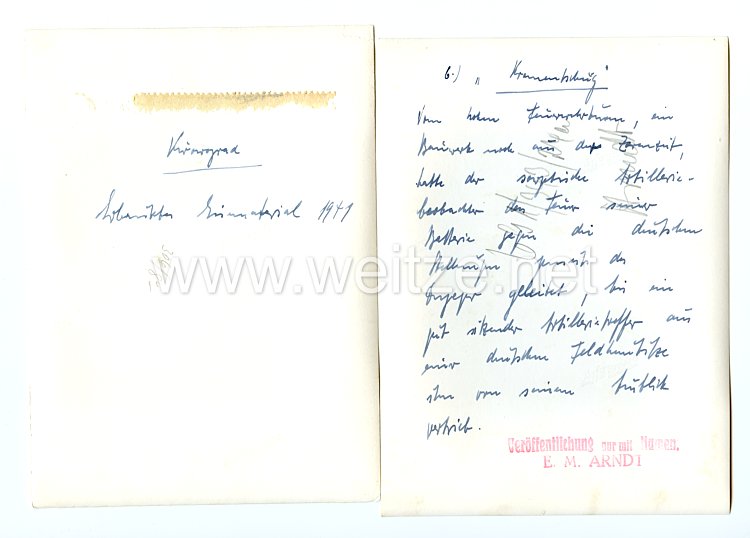 Kirowograd
Erbeutetes 1941
6.) „Krementschug"
Vom hohen Feuerwehrturm, ein
Bauwerk noch aus der Zarenzeit,
hatte der sowjetische Artillerie-
beobachter das Feuer seiner
Batterie gegen die deutschen
Stellungen jenseits des
geleitet, bis ein
gut sitzender Artillerietreffer aus
einer deutschen Feldhaubitze
ihn von seinem Ausblick
vertrieb.
Veröffentlichung nur mit Namen.
E. M. ARNDT
www.weitze.net